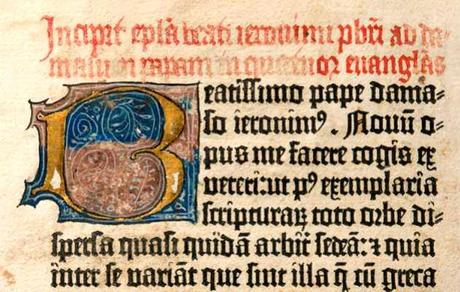 Incipit epl̃a beati ieronimi pbr̃i ad da-
masum papam in quatuor euangl̃ās
Beatissimo pape dama-
so ieronimꝰ. Nouū o-
pus me facere cogis ex
veteri: ut pꝰ exemplaria
scripturaꝝ toto orbe di-
spersa quasi quidā arbit̃ sedeā: ⁊ quia
inter se variāt que sint illa q̄ cū greca